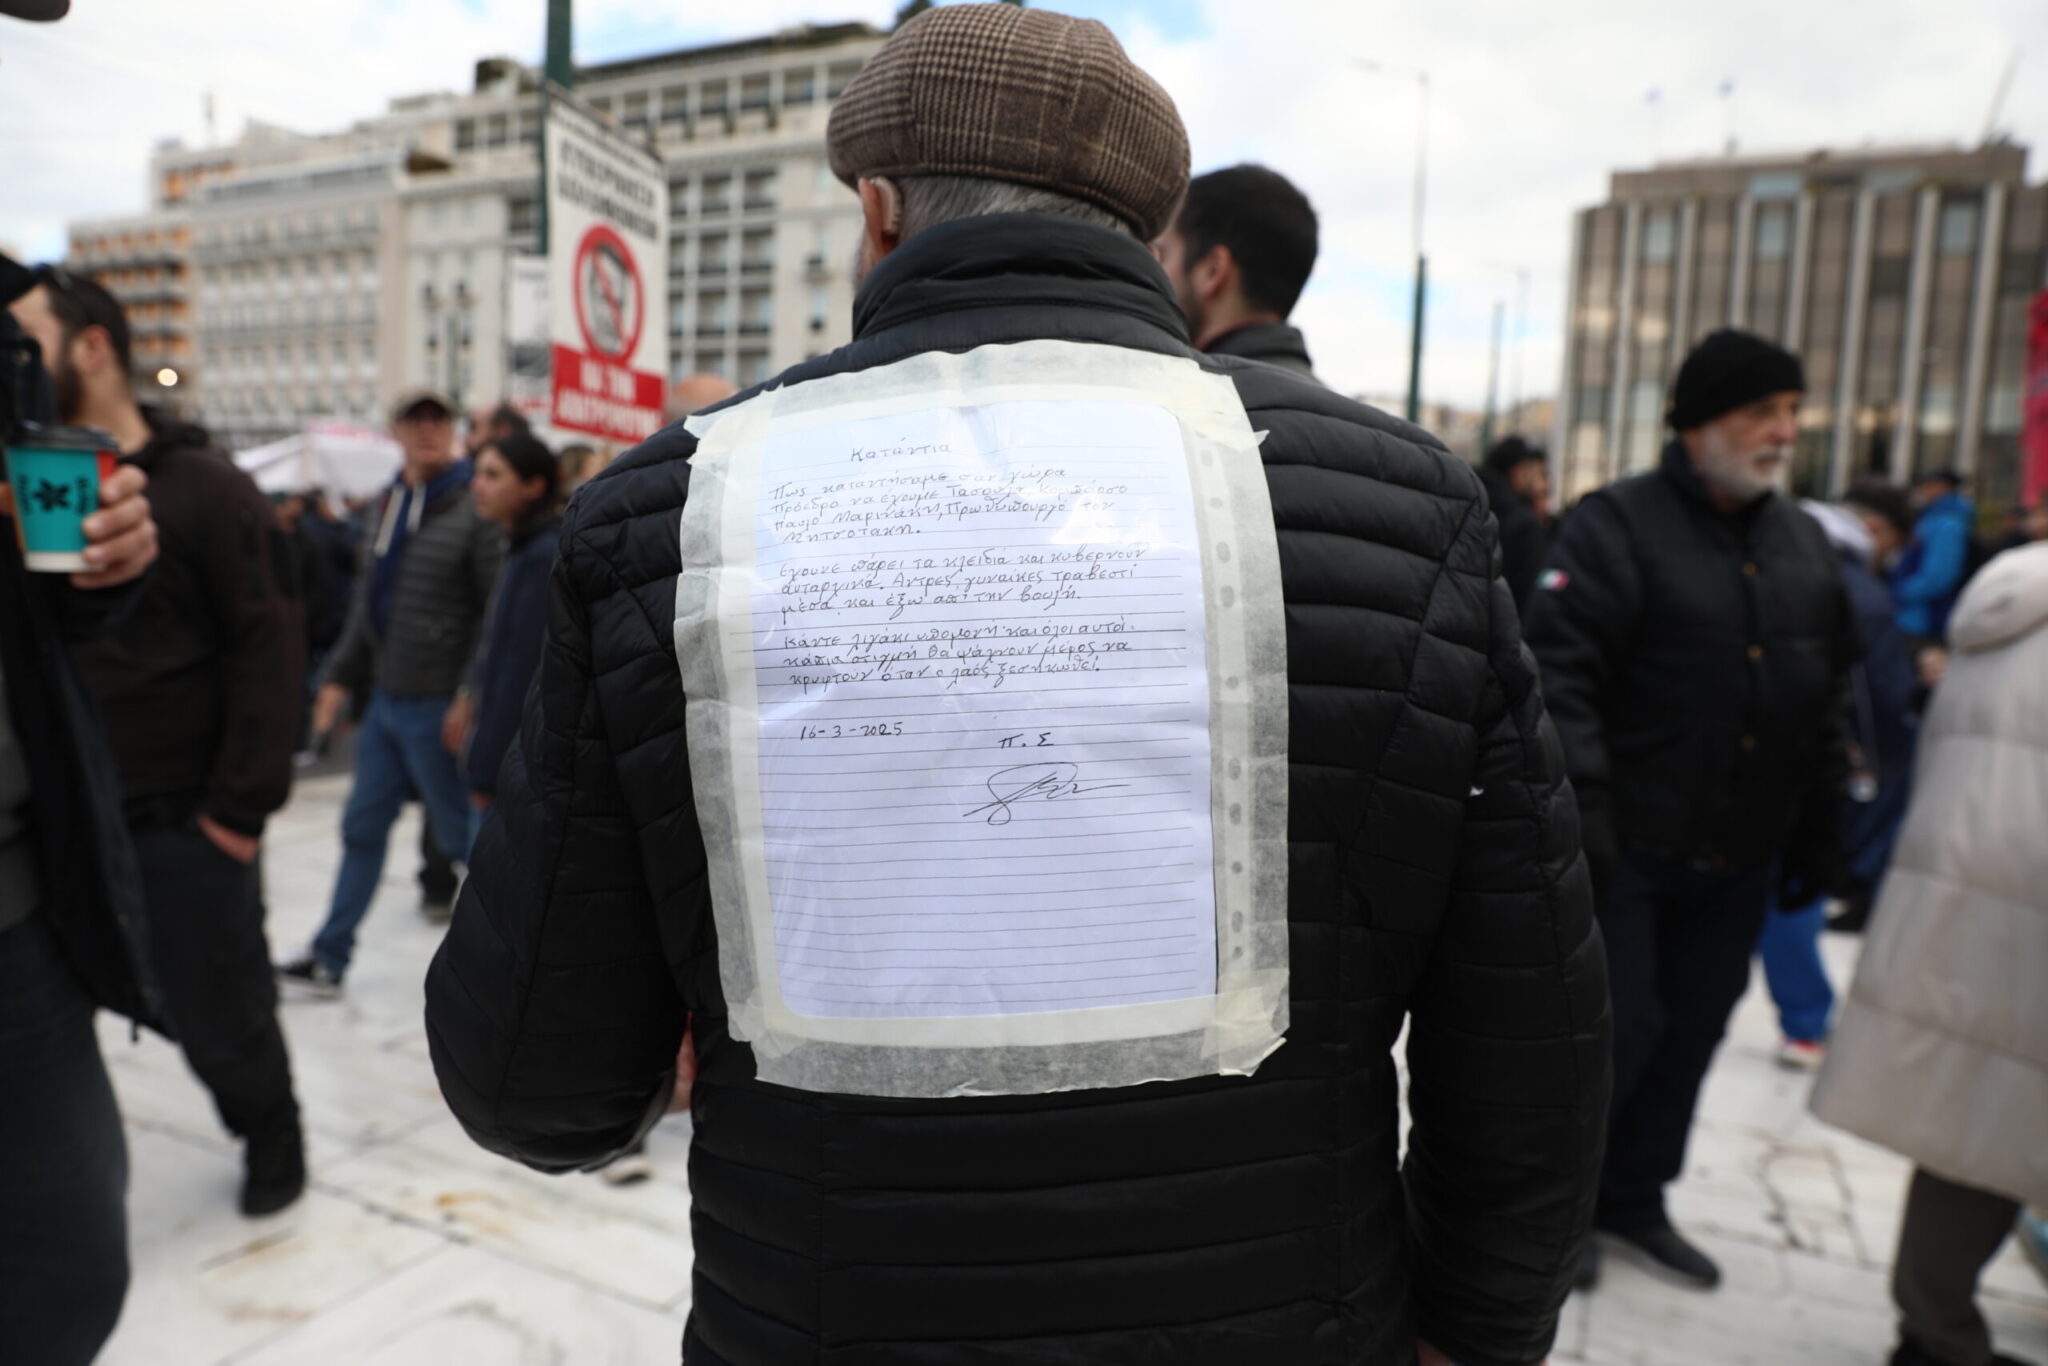 Κατάντια
Πως καταντήσαμε σαν χώρα
Πρόεδρο να έχουμε Τασούλα, κομπάρσο
Παύλο Μαρινάκη, Πρωθυπουργό τον
Μητσοτάκη.
Έχουνε πάρει τα κλειδιά και κυβερνούν
αυταρχικά. Άντρες, γυναίκες τραβεστί
μέσα και έξω απ' την βουλή.
Κάντε λιγάκι υπομονή και όλοι αυτοί
κάπια στιγμή θα ψάχνουν μέρος να
κρυφτούν όταν ο λαός ξεσηκωθεί.
16-3-2025
Π. Σ